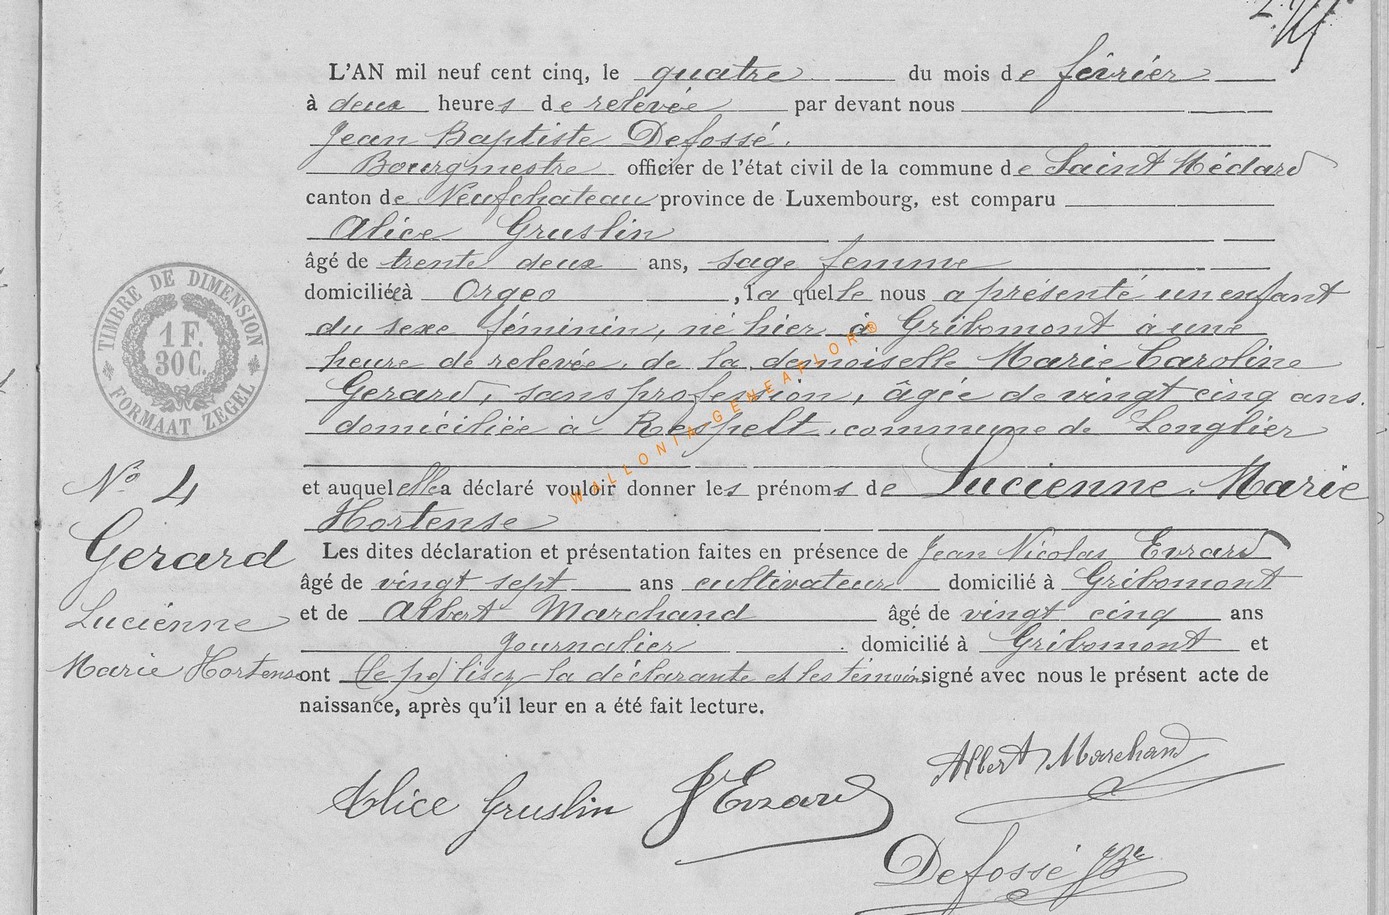 L'AN mil neuf cent cinq, le quatre du mois de février
à deux heures de relevée par devant nous
Jean Baptiste Defossé.
Bourgmestre officier de l'état civil de la commune de Saint Médard
canton de Neufchateau province de Luxembourg, est comparu
Alice Gruslin
âgé de trente deux ans, sage femme
domiciliée à Orgeo, la quelle nous a présenté un enfant
du sexe féminin, né hier à Gribomont à une
heure de relevée, de la demoiselle Marie Caroline
Gerard, sans profession, âgée de vingt cinq ans.
domiciliée à Respelt, commune de Longlier
et auquel elle a déclaré vouloir donner les prénoms de Lucienne Marie
Hortense
Les dites déclaration et présentation faites en présence de Jean Nicolas Evrard
âgé de vingt sept ans cultivateur domicilié à Gribomont
et de Albert Marchand âgé de vingt cinq ans
journalier domicilié à Gribomont et
ont (le pe) lisez la déclarante et les témoins signé avec nous le présent acte de
naissance, après qu'il leur en a été fait lecture.
TIMBRE DE DIMENSION
1 F.
30 C.
FORMAAT ZEGEL
N° 4
Gerard
Lucienne
Marie Hortense
WALLONIA-GENEAFLOR®
Albert Marchand
Alice Gruslin JEvrard
Defossé JBte